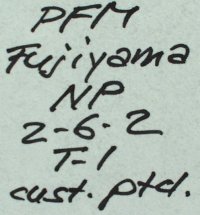 PFM
Fujiyama
NP
2-6-2
T-1
cust. ptd.